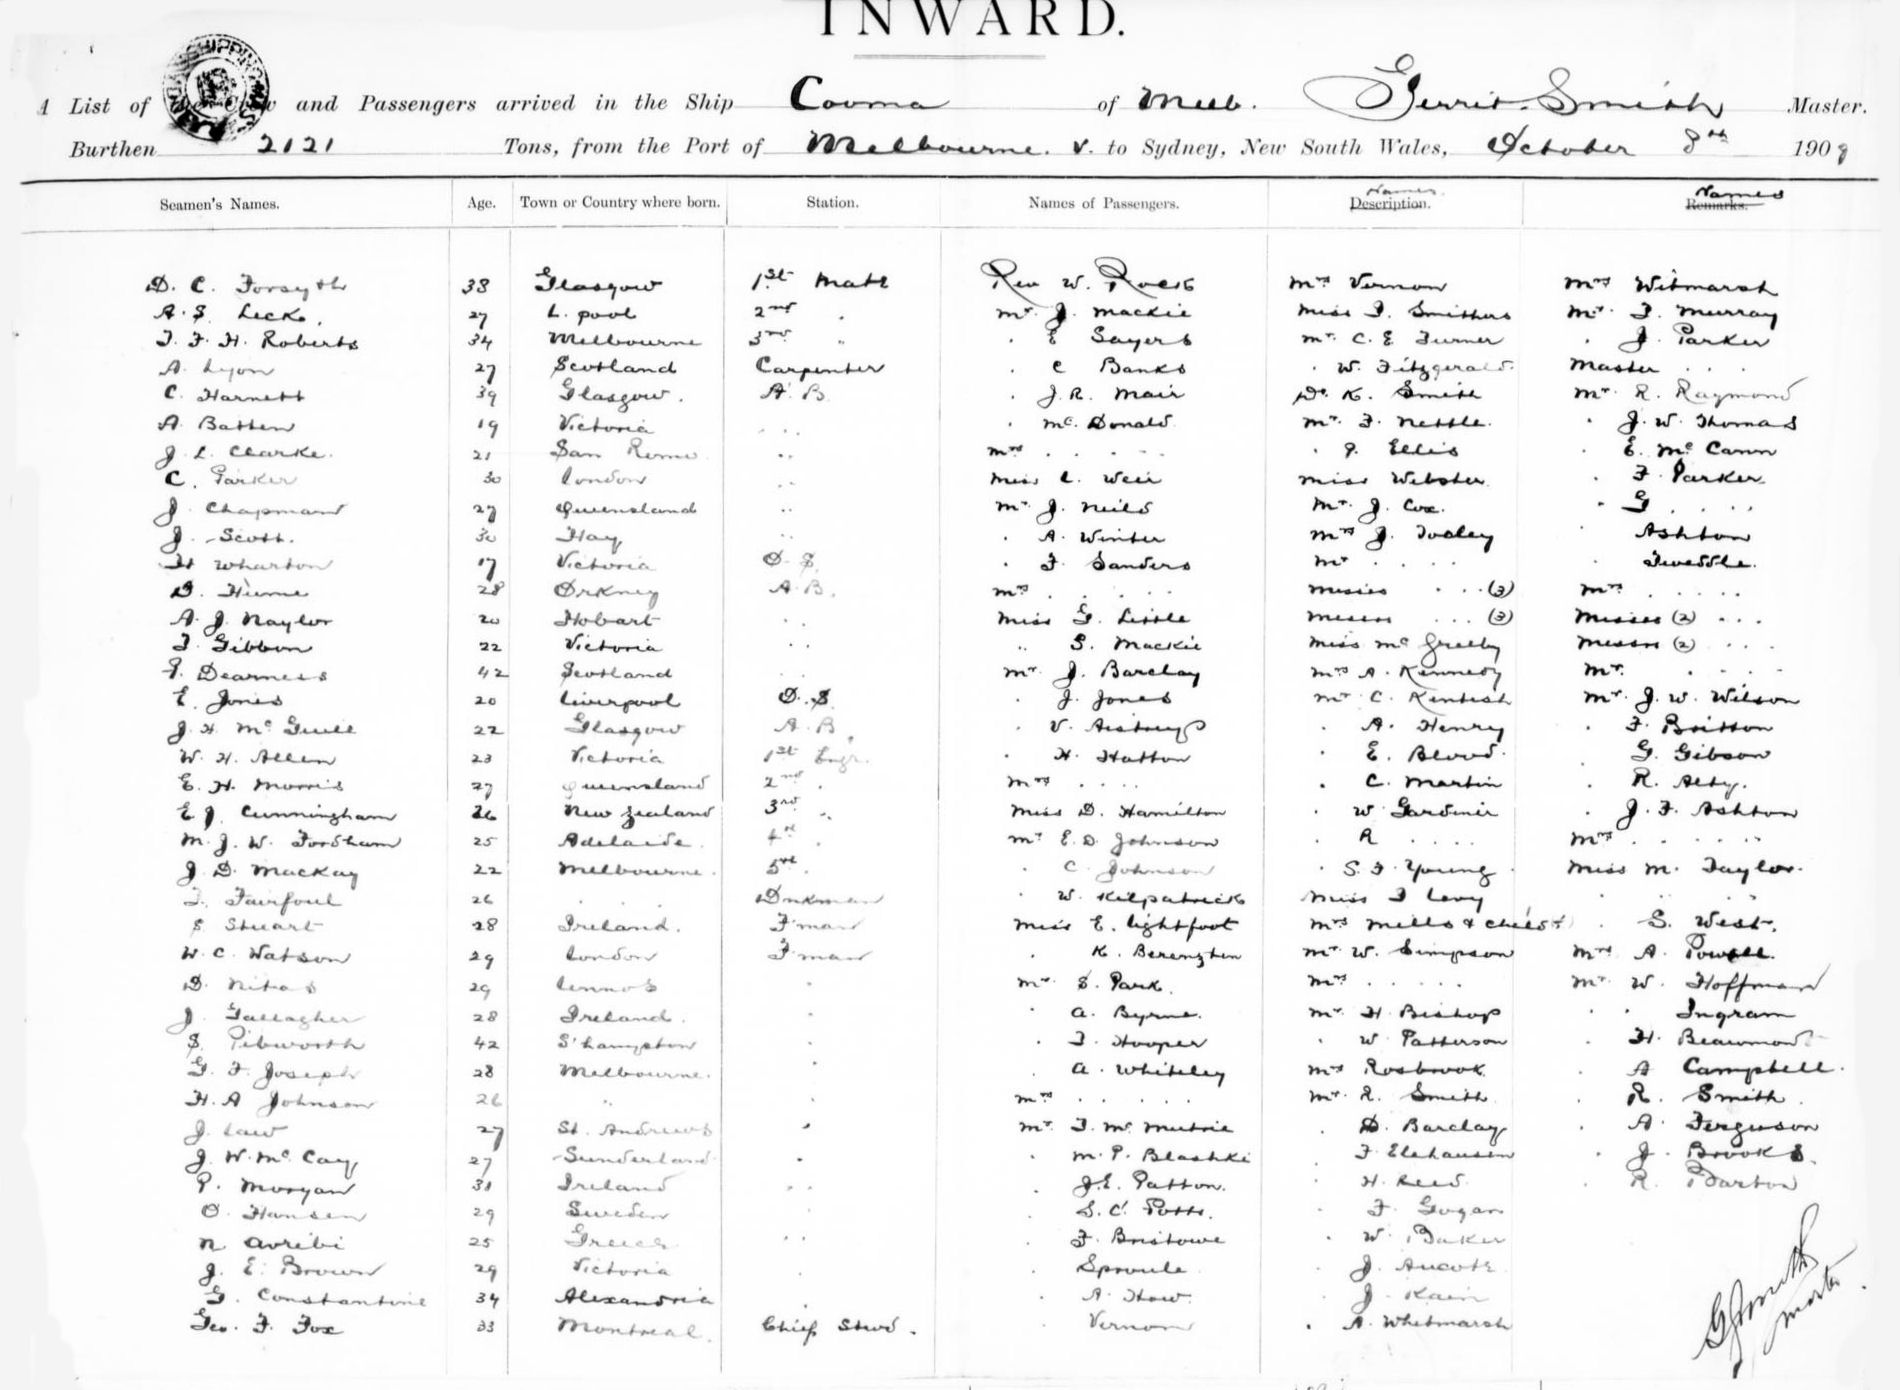 INWARD.
A List of the Crew and Passengers arrived in the Ship Cooma of Melb. Gerrit Smith Master.
Burthen 2121 Tons, from the Port of Melbourne. v. to Sydney, New South Wales, October 8th 1909
Seamen's Names. Age. Town or Country where born. Station. Names of Passengers. Names. Description. Names Remarks.
D. C. Forsyth 38 Glasgow 1st Mate Rev W. Rock Mrs Vernon Mrs Witmarsh
A. S. Leck. 27 L. pool 2nd . Mr. J. Mackie Miss I. Smithers Mr. T. Murray
T. F. H. Roberts 34 Melbourne 3rd " . E Sayers Mr. C. E. Turner . J. Parker
A. Lyon 27 Scotland Carpenter . C Banks . W. Fitzgerald. Master . . .
C. Harnett 39 Glasgow. A. B. . J. R. Mair Dr. K. Smith Mr. R. Raymond
A. Batten 19 Victoria . . . . Mc. Donald. Mr. F. Nettle. . J. W. Thomas
J. L. Clarke. 21 San Remo . . Mrs . . . . . . P. Ellis . E. Mc Cann
C. Parker 30 London . . Miss L. Weir Miss Webster. . F. Parker.
J. Chapman 27 Queensland . . Mr. J. Neild Mr. J. Cox. . G . . . .
J. Scott. 30 Hay . . . A. Winter Mrs J. Tooley . Ashton
H Wharton 17 Victoria O. S. . F. Sanders Mr . . . . . Tweddle.
D. Hume 28 Orkney A. B. Mrs . . . . . Misses . . . (3) Mrs . . . . .
A. J. Naylor 20 Hobart . . Miss G. Little Messrs . . . (3) Misses (2) . . .
T. Gibbon 22 Victoria . . " S. Mackie Miss Mc Greely Messrs (2) . . . .
P. Dearness 42 Scotland . . Mr. J. Barclay Mrs A. Kennedy Mr. . . . . .
E. Jones 20 Liverpool O. S. . J. Jones Mr C. Kentish Mr. J. W. Wilson
J. H. Mc Guill 22 Glasgow A. B. . V. . A. Henry . F. Britton
W. H. Allen 23 Victoria 1st Engr. . H. Hatton . E. Blood. . G. Gibson
E. H. Morris 27 Queensland 2nd . Mrs . . . . . C. Martin . R. Alty.
E J. Cunningham 26 New Zealand 3rd " Miss D. Hamilton . W Gardiner . J. F. Ashton
M. J. W. Fordham 25 Adelaide. 4th . Mr E. D. Johnson . R . . . . Mrs . . . . . .
J. D. Mackay 22 Melbourne. 5th . . C. Johnson . S. F. Young. Miss M. Taylor.
T. Fairfoul 26 . . . Dnkman . W. Kilpatrick Miss I Levy . . .
S Stuart 28 Ireland. F'man Miss E. Lightfoot Mrs Mills & child . S. West.
W. C. Watson 29 London F'man . K. Mr. W. Simpson Mrs A. Powell.
D. Nitas 29 Lemnos . Mr. S. Park. Mrs . . . . . Mr. W. Hoffman
J. Gallagher 28 Ireland. . . A. Byrne. Mr. H. Bishop . . Ingram
S. Pibworth 42 S'hampton . . T. Hooper . W. Patterson . H. Beaumont
G. F. Joseph 28 Melbourne. . . A. Whiteley Mrs Rosbrook. . A Campbell.
H. A Johnson 26 " . Mrs . . . . . Mr. R. Smith . R. Smith.
J. Law 27 St. Andrews . Mr. T. Mc Mutrie . D. Barclay . A. Ferguson
J. W. Mc Cay 27 Sunderland . . M. P. Blashki . F. Elshausen . J. Brooks.
P. Morgan 31 Ireland . . . J. E. Patton. . H. Reed. . R. Barton
O. Hansen 29 Sweden . S. C. Potts. . F. Gogan
N. Avribi 25 Greece . . . F. Bristowe . W. Baker
J. E. Brown 29 Victoria . . Sproule . J. Aucote
G. Constantine 34 Alexandria . . A. How. . J. Kain
Geo. F. Fox 33 Montreal. Chief Stwd. . Vernon . A. Whitmarsh
G Smith
Master.